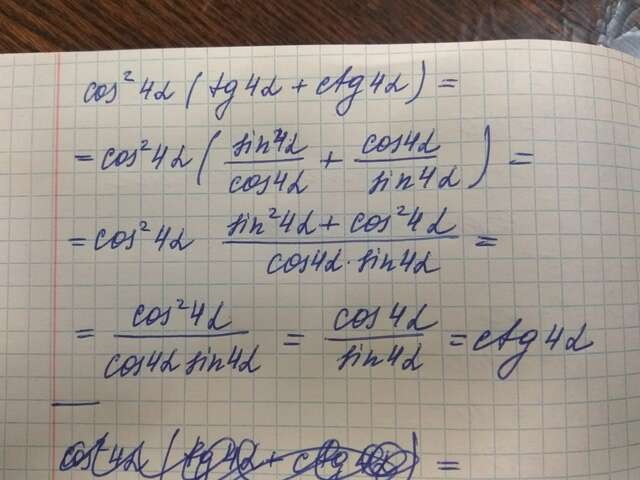 cos²4α (tg4α + ctg4α) =
= cos²4α ( sin4α/cos4α + cos4α/sin4α ) =
= cos²4α (sin²4α + cos²4α)/(cos4α · sin4α) =
= cos²4α/(cos4α sin4α) = cos4α/sin4α = ctg4α
cos²4α (tg4α + ctg4α) =